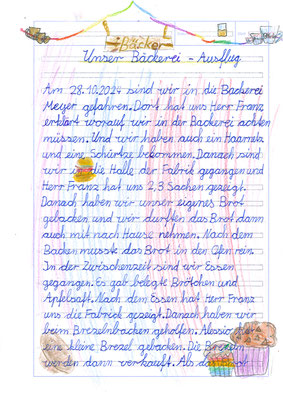 Bäcker
Unser Bäckerei - Ausflug
Am 28.10.2024 sind wir in die Bäckerei
Meyer gefahren. Dort hat uns Herr Franz
erklärt worauf wir in der Backerei achten
müssen. Und wir haben auch ein Haarnetz
und eine Schürtze bekommen. Danach sind
wir in die Halle der Fabrik gegangen und
Herr Franz hat uns 2,3 Sachen gezeigt.
Danach haben wir unser eigenes Brot
gebacken und wir durften das Brot dann
auch mit nach Hause nehmen. Nach dem
Backen musste das Brot in den Ofen rein.
In der Zwischenzeit sind wir Essen
gegangen. Es gab belegte Brötchen und
Apfelsaft. Nach dem Essen hat Herr Franz
uns die Fabrick gezeigt. Danach haben wir
beim Brezelnbacken geholfen. Alessio hat
eine kleine Brezel gebacken. Die Brezeln
werden dann verkauft. Als das Brot